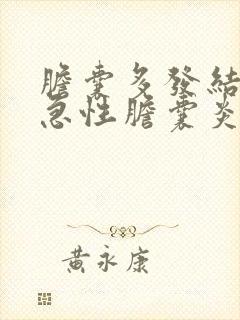 膽囊多發結
急性膽囊炎
黃永康